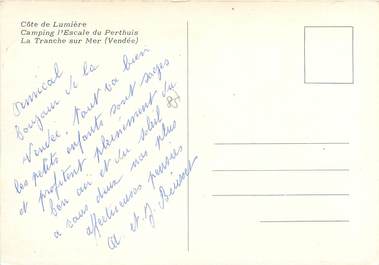 Côte de Lumière
Camping l'Escale du Perthuis
La Tranche sur Mer (Vendée)
Amical
bonjour de la
Vendée. tout va bien
les petits enfants sont sages
et profitent pleinement du
bon air et du soleil
a vous deux nos plus
affectueuses pensées
et J.